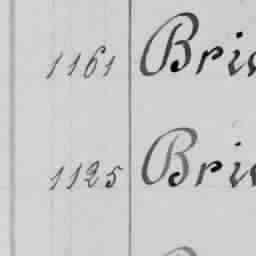 1161 Bri
1125 Bri